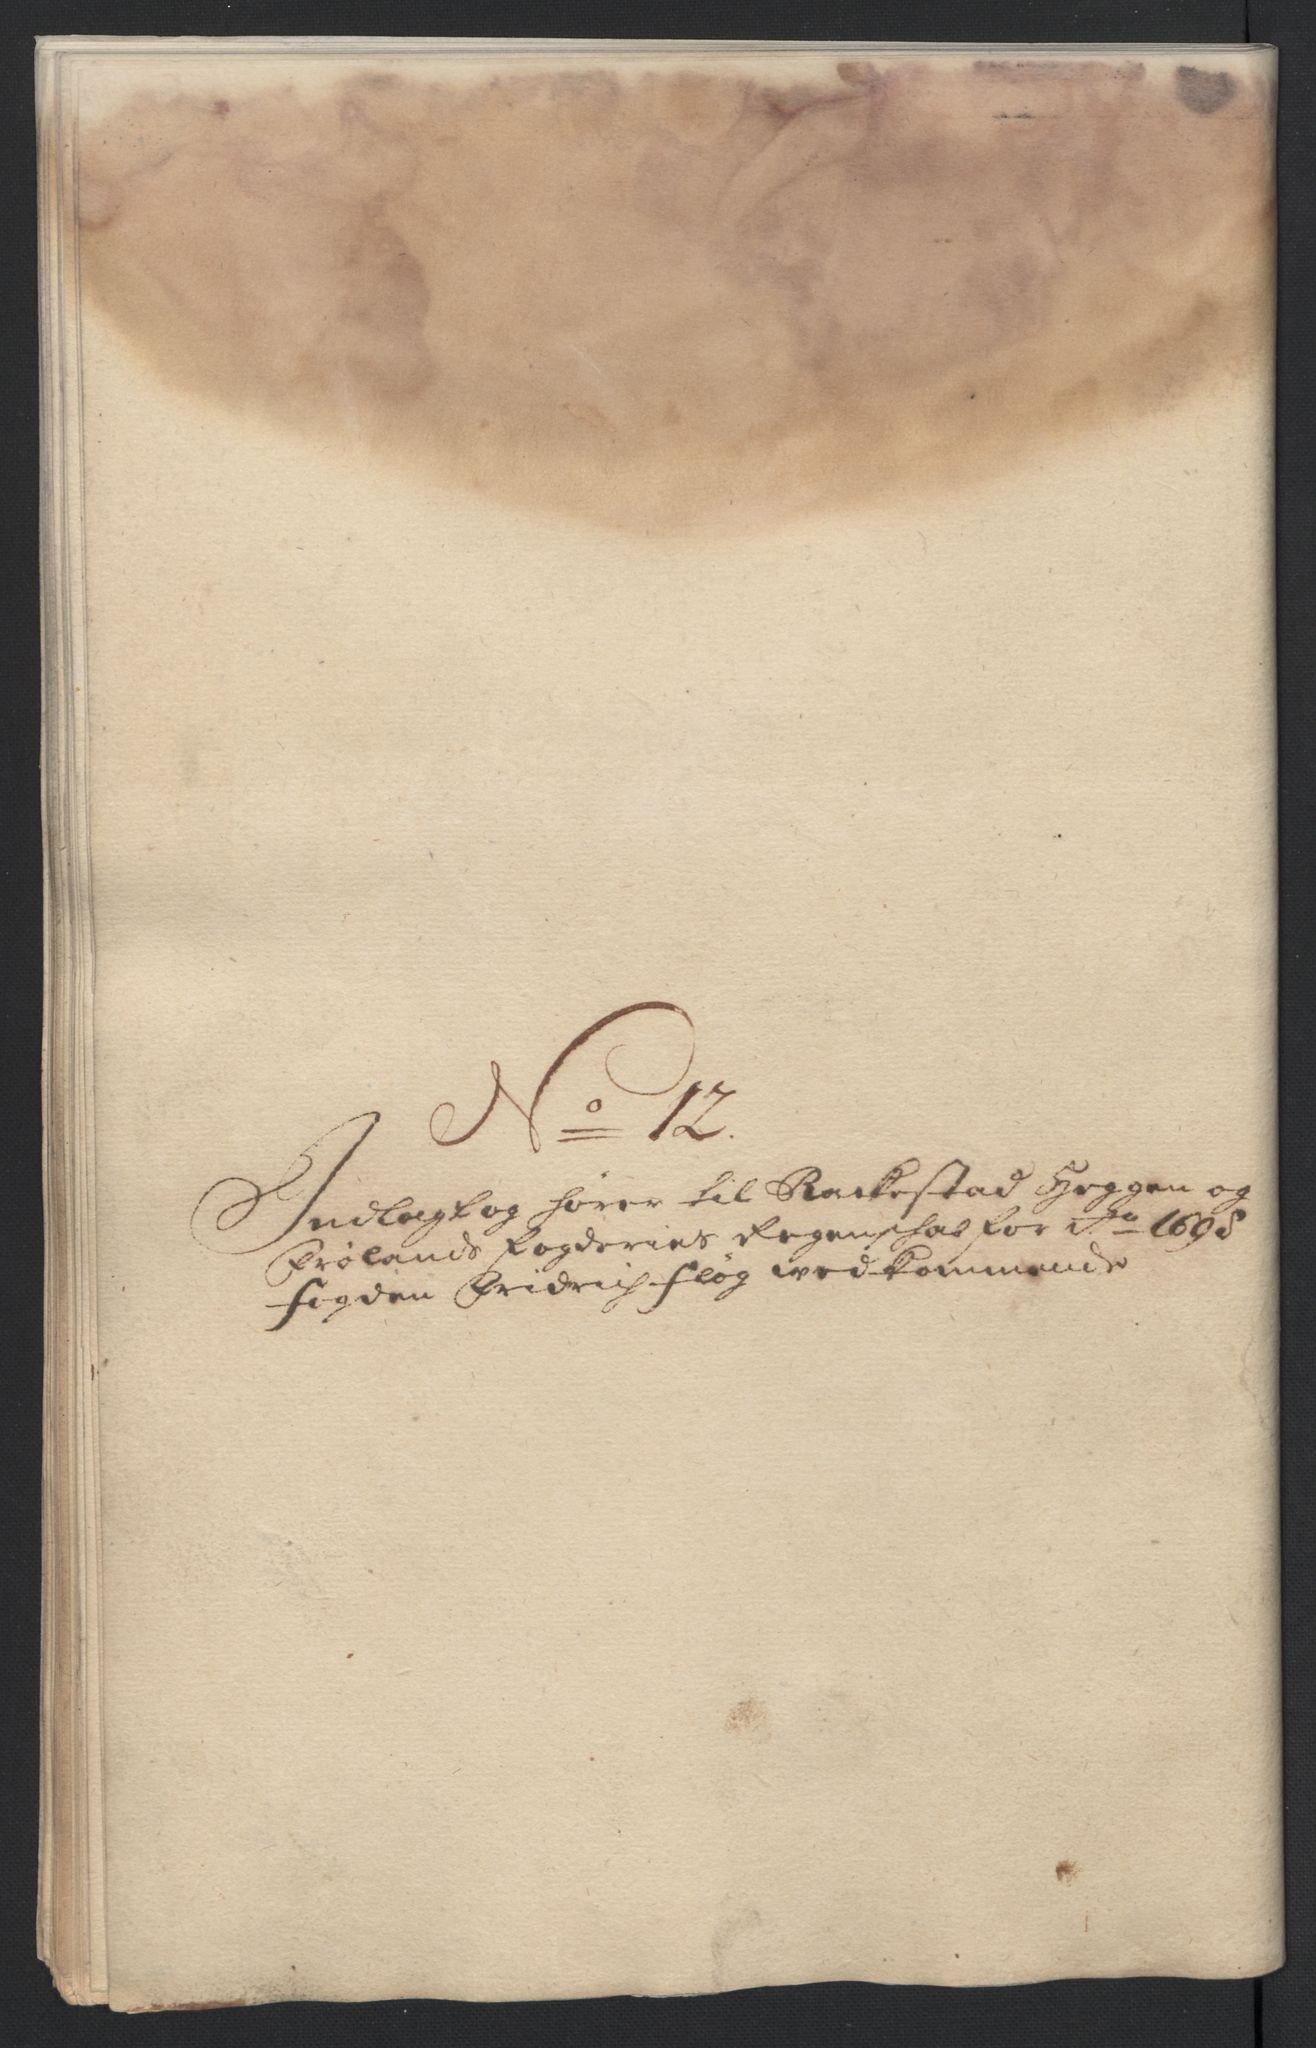 No 12.
Indlagt og hører til Rackestad Heggen og
Frølands fogderies Regenschab for Ao 1698
fogden Fridrich Fløg wedkommende